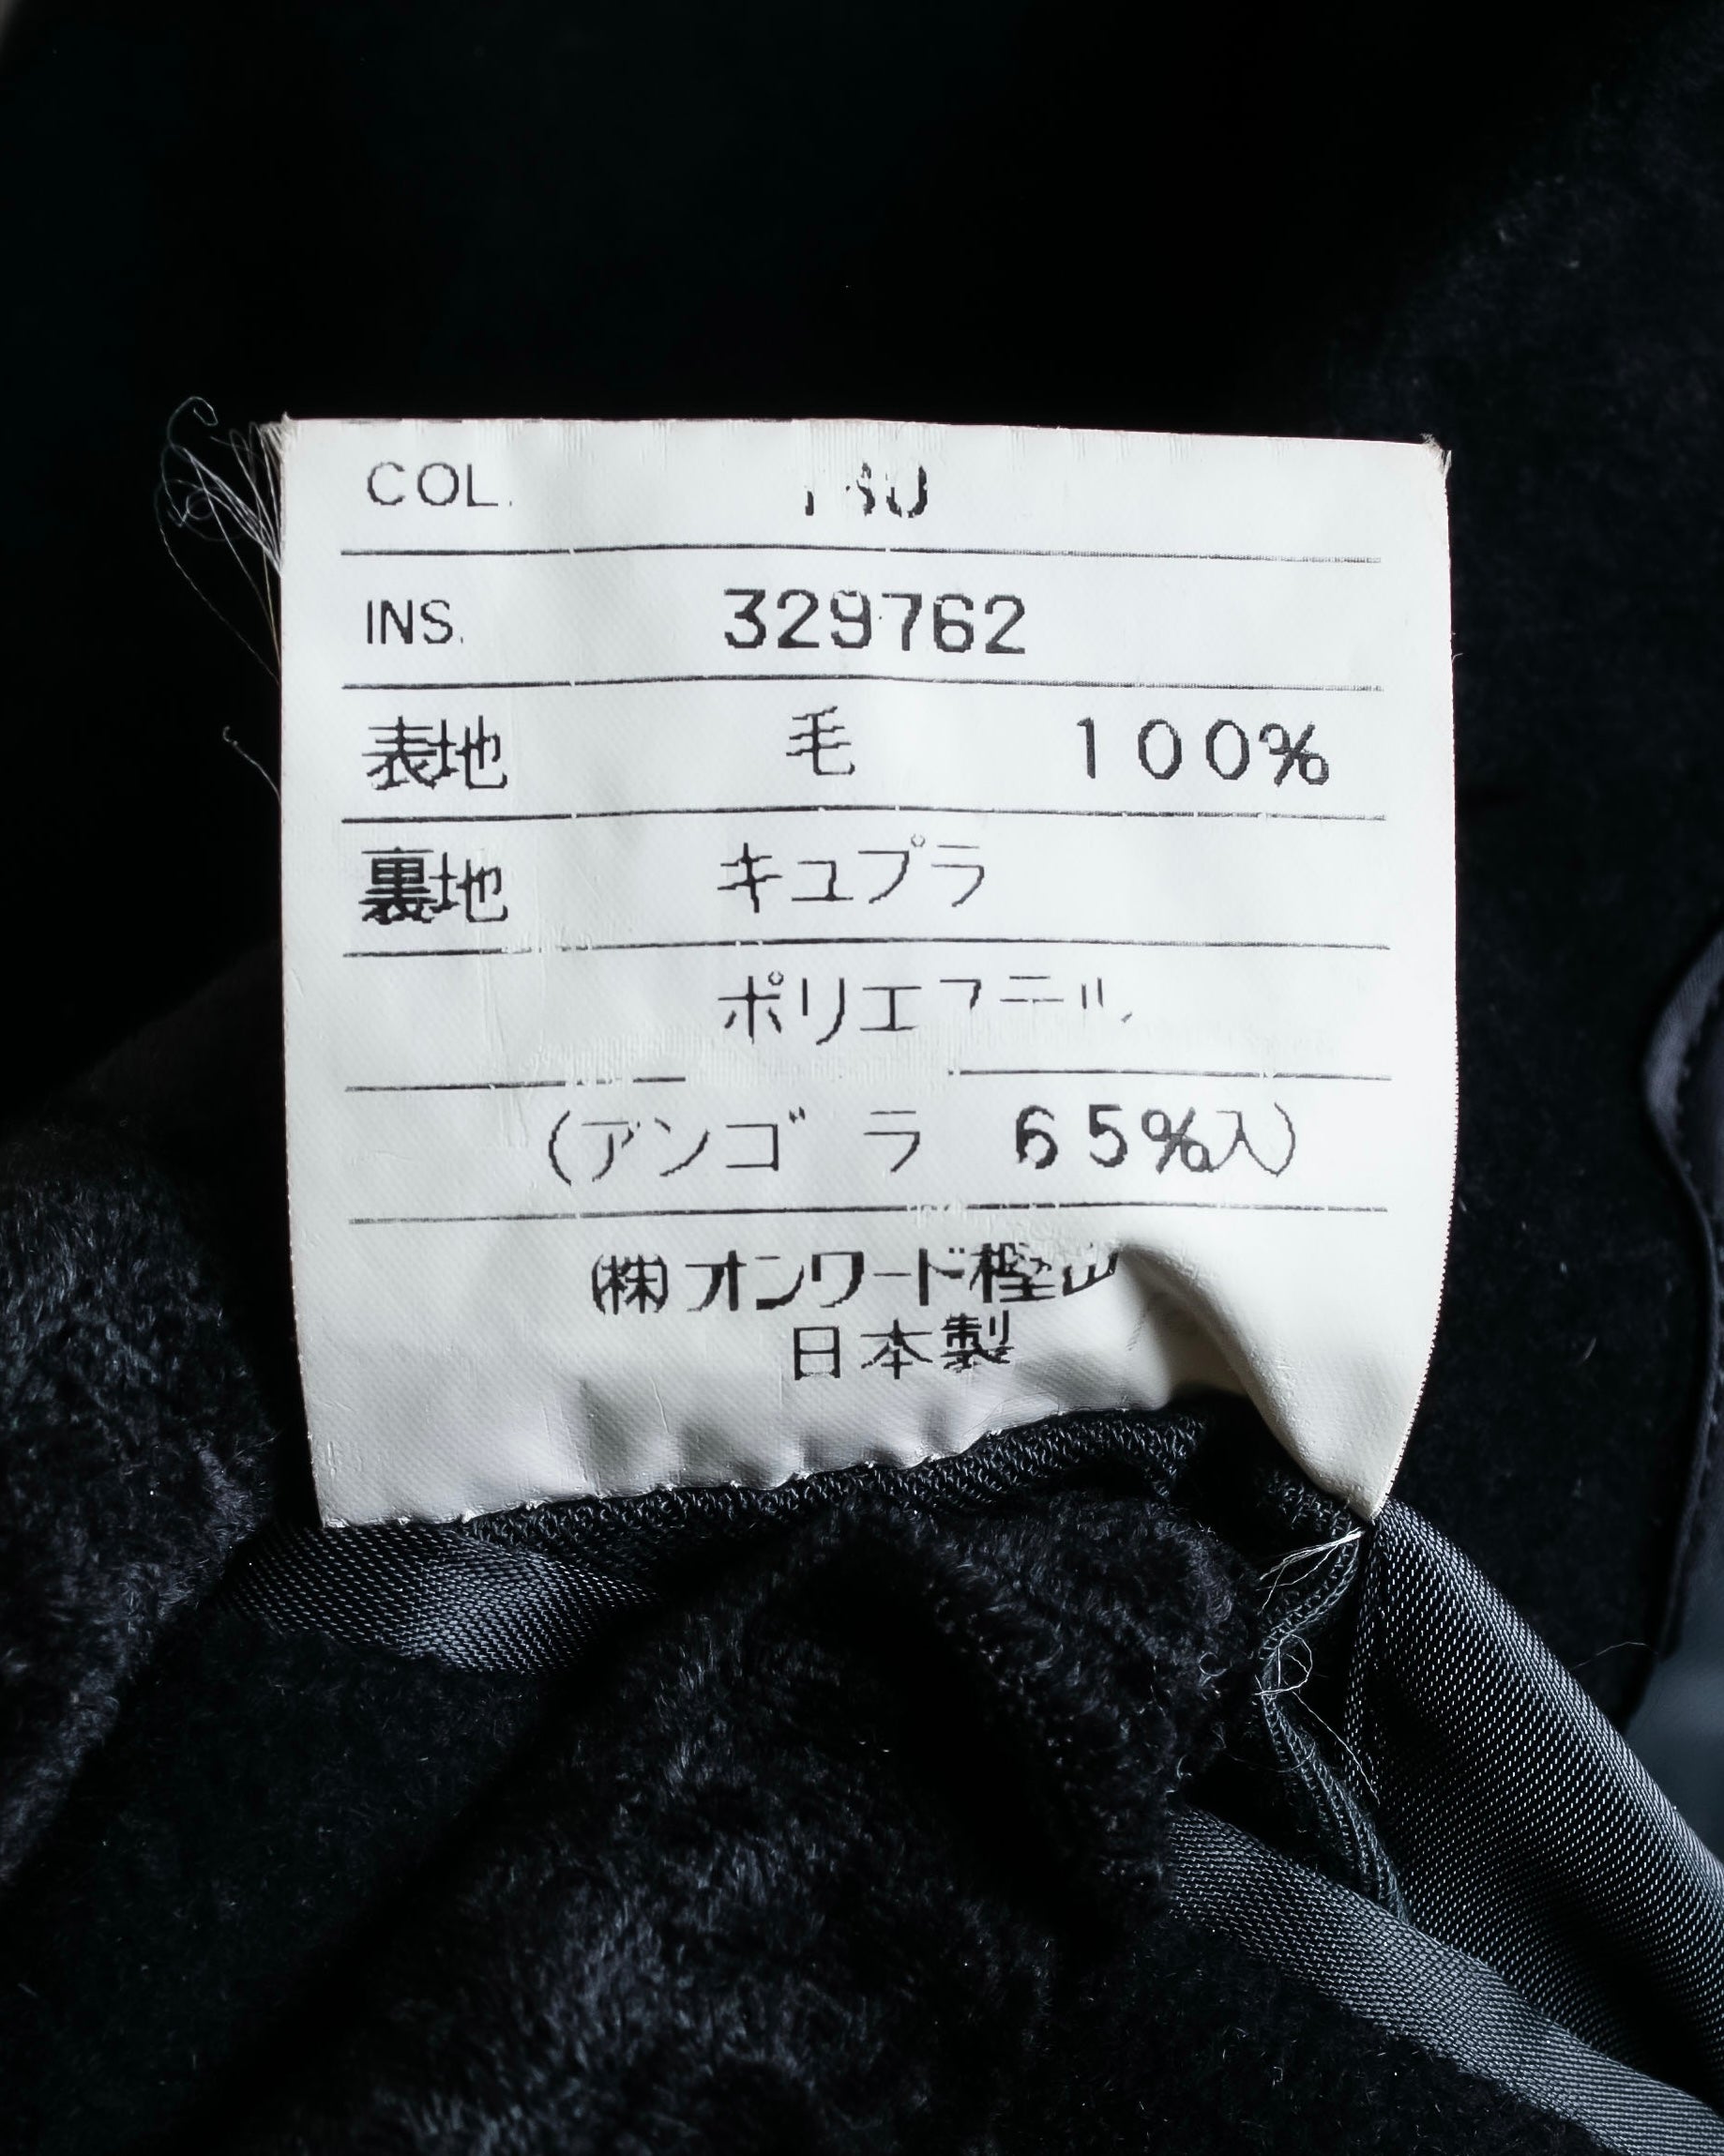 COL.
INS. 329762
表地 毛 100%
裏地 キュプラ
ポリエステル
(アンゴラ 65%入)
(株)オンワード樫山
日本製